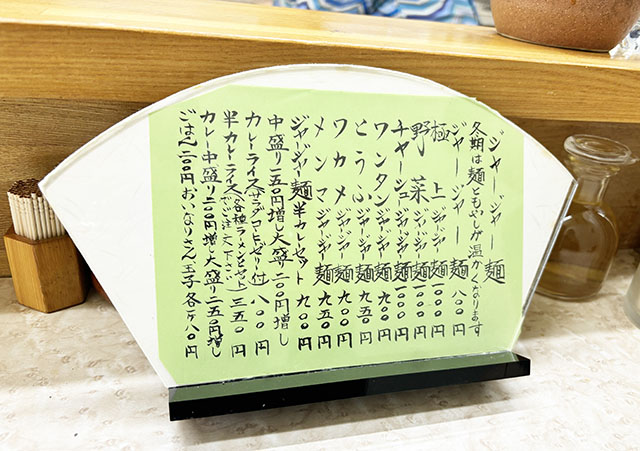 ジャージャー麺
冬期は麺ともやしが温かくなります
ジャージャー麺 八〇〇円
極上ジャージャー麺 一〇〇〇円
野菜ジャージャー麺 一〇〇〇円
チャーシュージャージャー麺 一〇〇〇円
ワンタンジャージャー麺 九〇〇円
とうふジャージャー麺 九五〇円
ワカメジャージャー麺 九〇〇円
メンマジャージャー麺 九〇〇円
ジャージャー麺半カレーセット 九五〇円
中盛り一五〇円増し大盛り二〇〇円増し
カレーライス(サラダコーヒーゼリー付) 八〇〇円
半カレーライス(各種ラーメンとセットでご注文下さい) 三五〇円
カレー中盛り二〇〇円増し大盛り二五〇円増し
ごはん二〇〇円おいなりさん玉子各一ケ八〇円